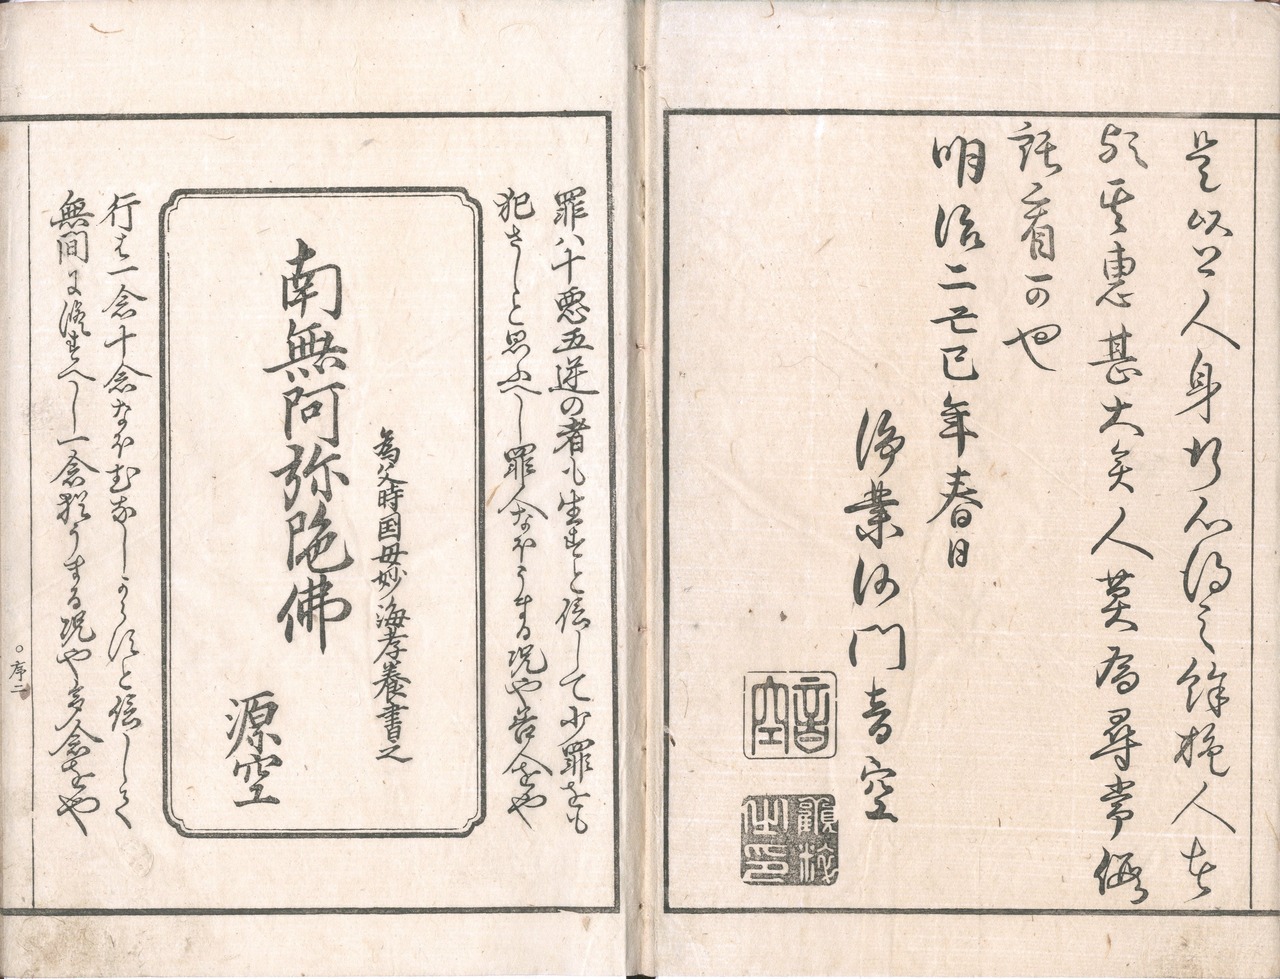 是以上人身行心得之餘施人者
於其惠甚大矣人莫為尋常俚
話看可也
明治二己巳年春日
浄業沙門音空
音空
罪ハ十悪五逆の者も生すと信して少罪をも
犯さしと思ふへし罪人なほうまる況や善人をや
為父時国母妙海孝養書之
南無阿弥陀佛
源空
行は一念十念なほむなしからすと信して
無間に修すへし一念猶うまる況や多念をや
○序二